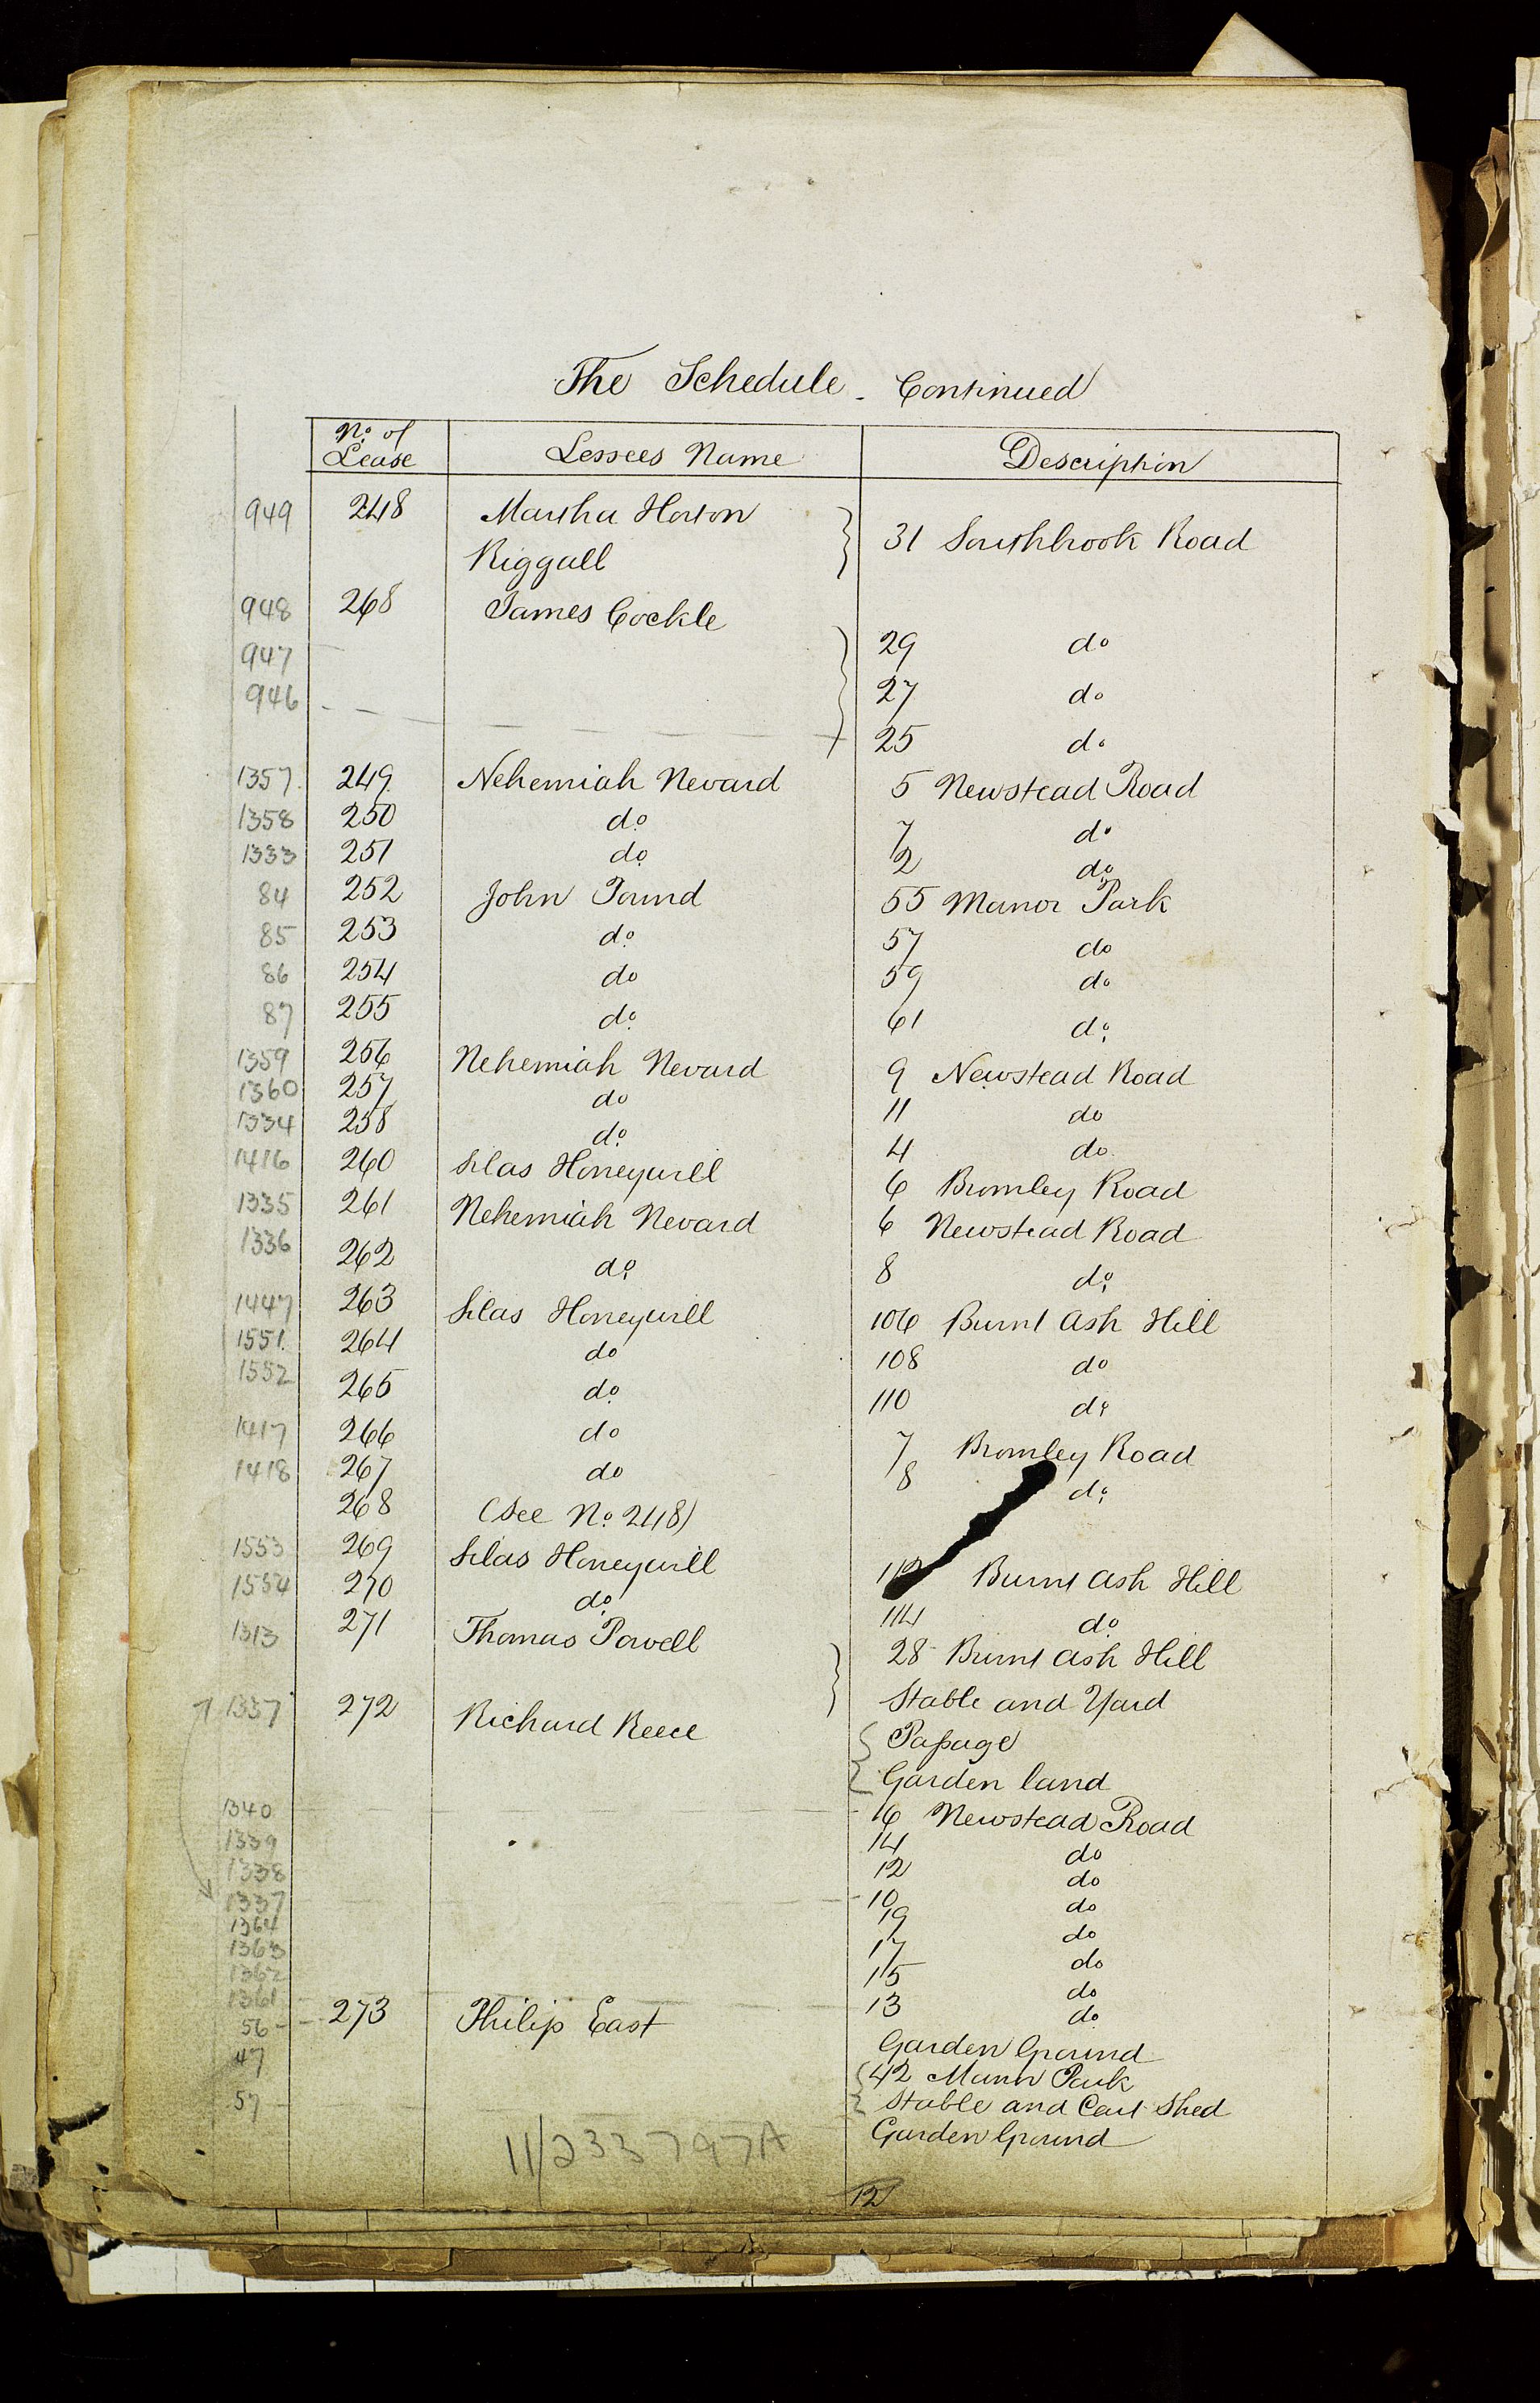 The Schedule - Continued
No. of Lease Lessees Name Description
949 248 Martha Horton
Riggall 31 Southbrook Road
948 268 James Cockle
947 29 do
946 27 do
25 do
1357 249 Nehemiah Nevard 5 Newstead Road
1358 250 do 7 do
1333 251 do 2 do
84 252 John Pound 55 Manor Park
85 253 do 57 do
86 254 do 59 do
87 255 do 61 do
1359 256 Nehemiah Nevard 9 Newstead Road
1360 257 do 11 do
1334 258 do 4 do
1416 260 Silas Honeywill 6 Bromley Road
1335 261 Nehemiah Nevard 6 Newstead Road
1336 262 do 8 do
1447 263 Silas Honeywill 106 Burnt Ash Hill
1551 264 do 108 do
1552 265 do 110 do
1417 266 do 7 Bromley Road
1418 267 do 8 do
268 (See No. 248)
1553 269 Silas Honeywill 112 Burnt Ash Hill
1554 270 do 114 do
1313 271 Thomas Powell 28 Burnt Ash Hill
Stable and Yard
1337 272 Richard Reece Passage
Garden land
1340 16 Newstead Road
1339 14 do
1338 12 do
1337 10 do
1364 19 do
1363 17 do
1362 15 do
1361 13 do
56 273 Philip East Garden Ground
47 42 Manor Park
Stable and Cart Shed
57 Garden Ground
11/233797A
12